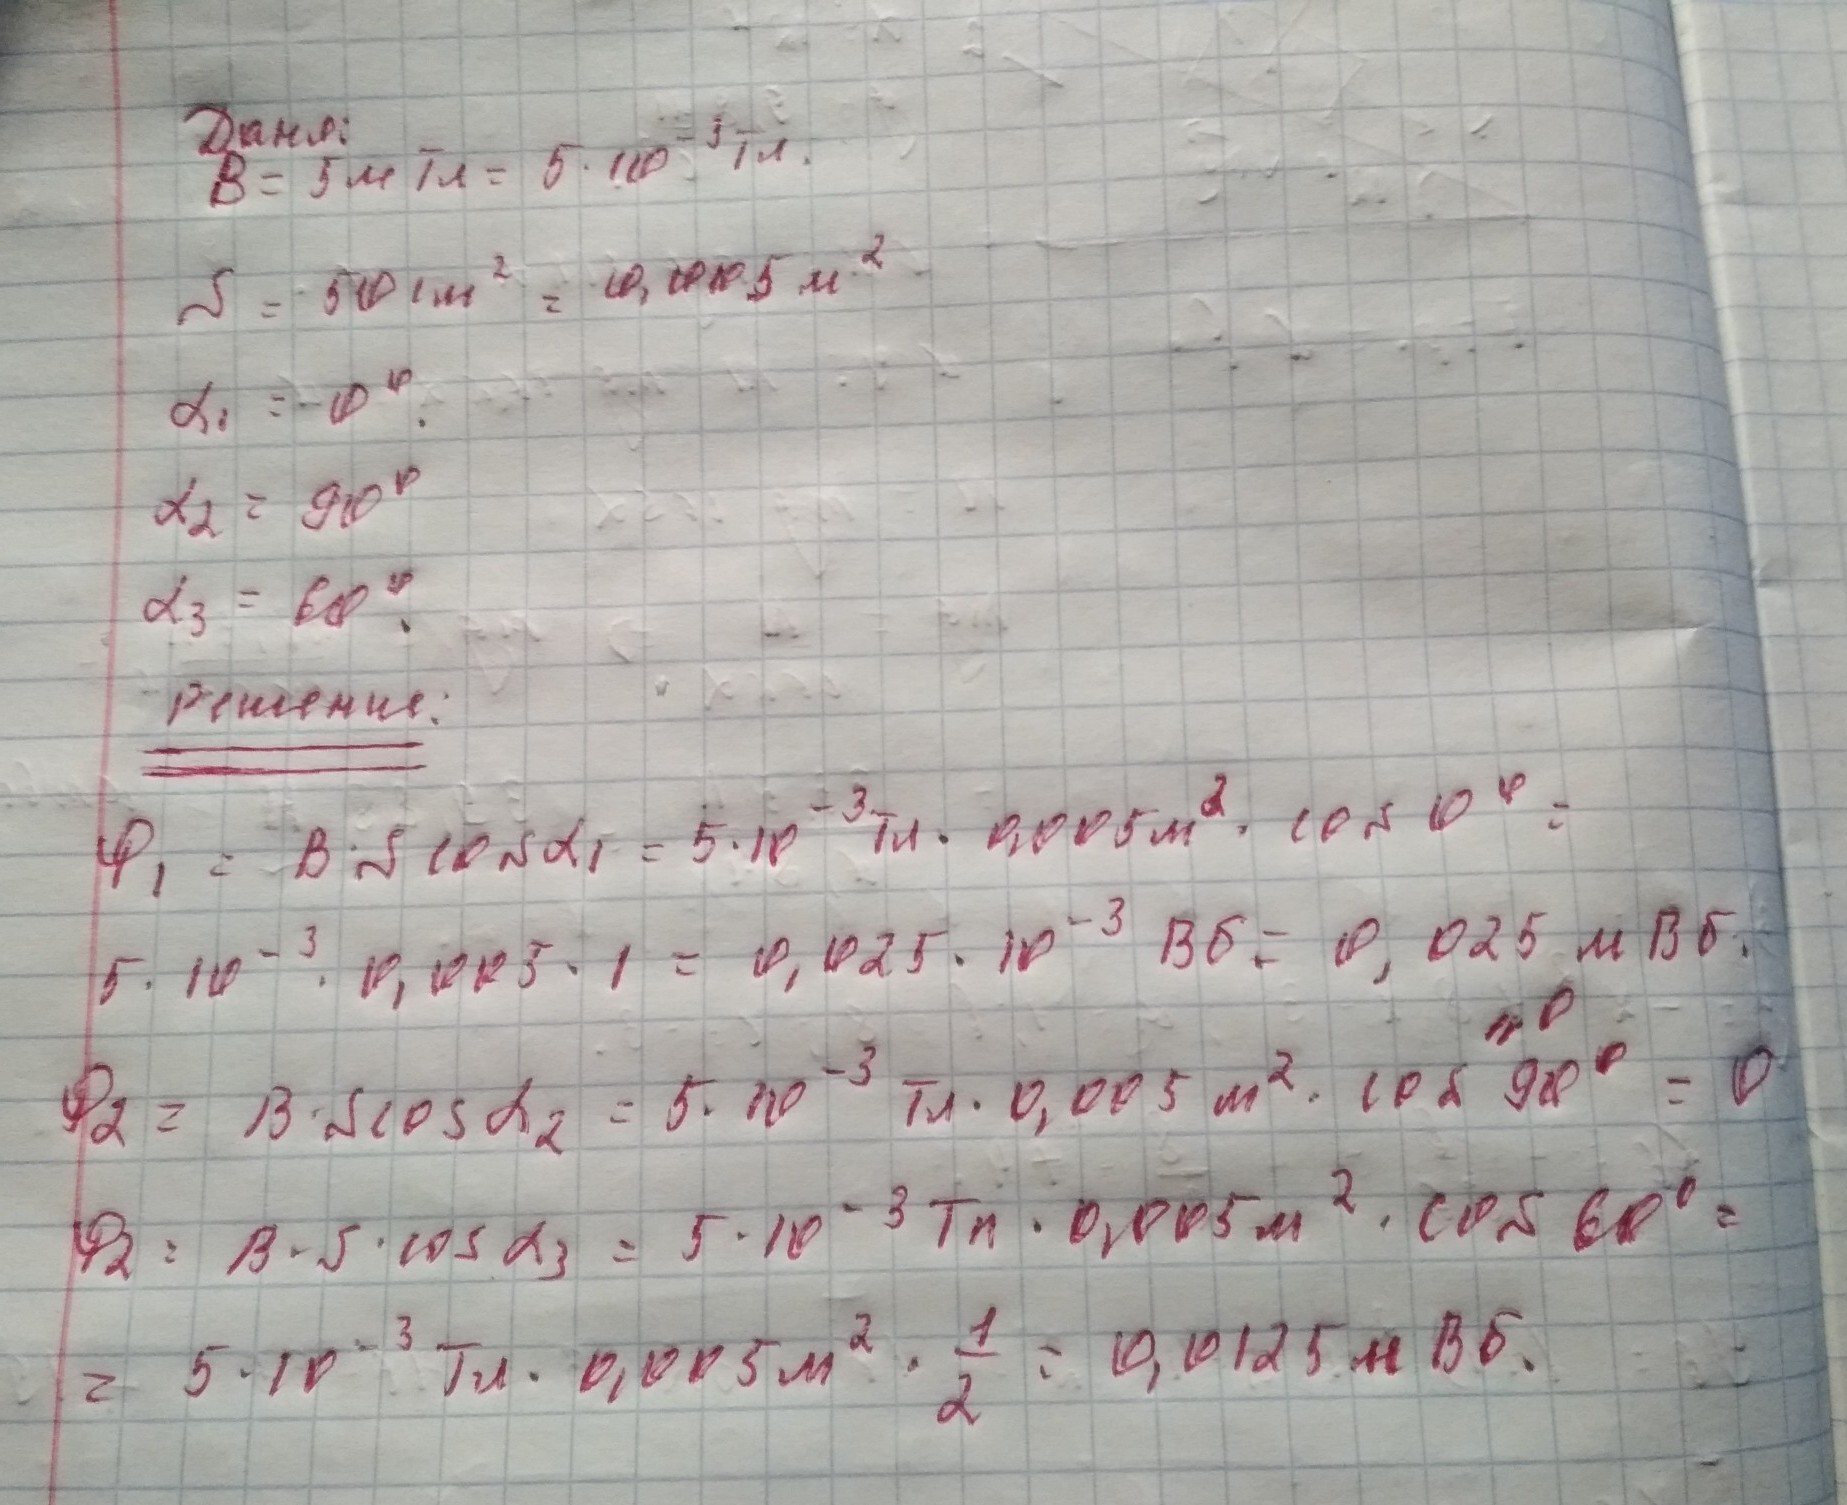 Дано:
B = 5 мТл = 5·10⁻³ Тл.
S = 50 см² = 0,005 м²
α₁ = 0⁰.
α₂ = 90⁰
α₃ = 60⁰.
Решение:
Ф₁ = B·S cosα₁ = 5·10⁻³ Тл · 0,005 м² · cos 0⁰ =
5·10⁻³ · 0,005 · 1 = 0,025 · 10⁻³ Вб = 0,025 мВб.
Ф₂ = B·S cos α₂ = 5·10⁻³ Тл · 0,005 м² · cos 90⁰ = 0
Ф₂ = B·S·cos α₃ = 5·10⁻³ Тл · 0,005 м² · cos 60⁰ =
= 5·10⁻³ Тл · 0,005 м² · 1/2 = 0,0125 мВб.